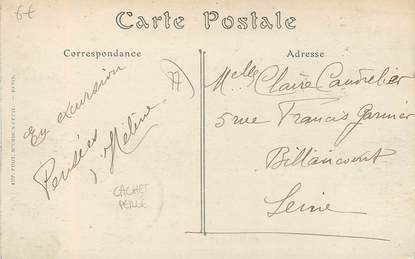 6€
Carte Postale
Correspondance
Adresse
77
En excursion
Pensées
d'Hélène
CACHET
PERLÉ
Melle Claire Caudrelier
5 rue Francis Garnier
Billancourt
Seine